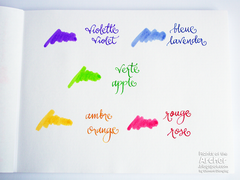 violette
violet
bleue
lavender
verte
apple
ambre
orange
rouge
rose
Archer